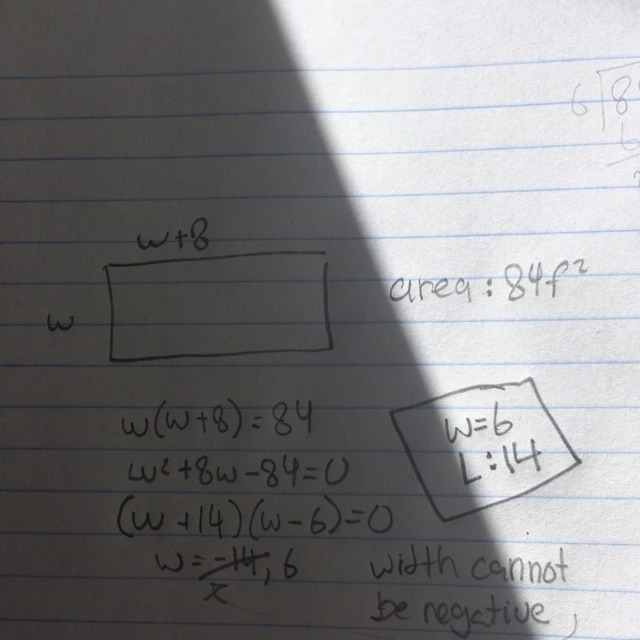 6 8
w+8
area : 84f²
w
w(w+8)=84
w²+8w-84=0
(w+14)(w-6)=0
w=-14, 6
x
w=6
L:14
width cannot
be negative,